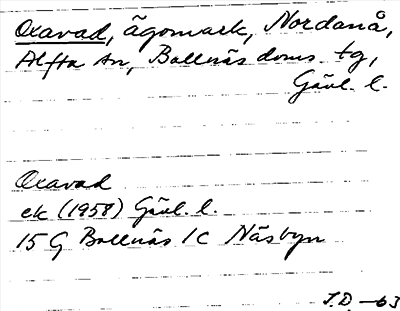 Oxavad, ägomark, Nordanå,
Alfta sn, Bollnäs doms. tg,
Gävl. l.
Oxavad
ek (1958) Gävl. l.
15 G Bollnäs 1C Näsbyn
J.D. -63